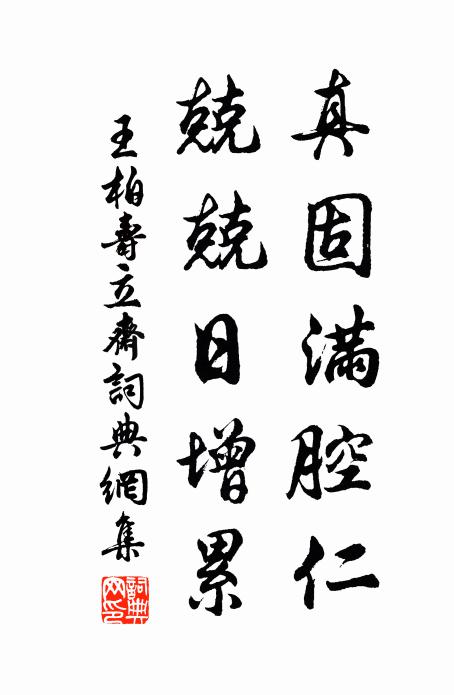 真固滿腔仁
兢兢日增累
王柏壽立齋詞典網集
詞典網印